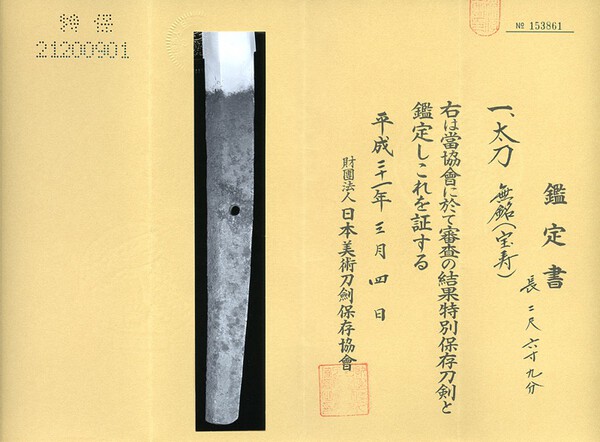 21200901
№ 153861
鑑定書
一、太刀 無銘(宝寿)
長二尺六寸九分
右は當協會に於て審査の結果特別保存刀剣と
鑑定しこれを証する
平成二十一年三月四日
財團法人日本美術刀劍保存協會